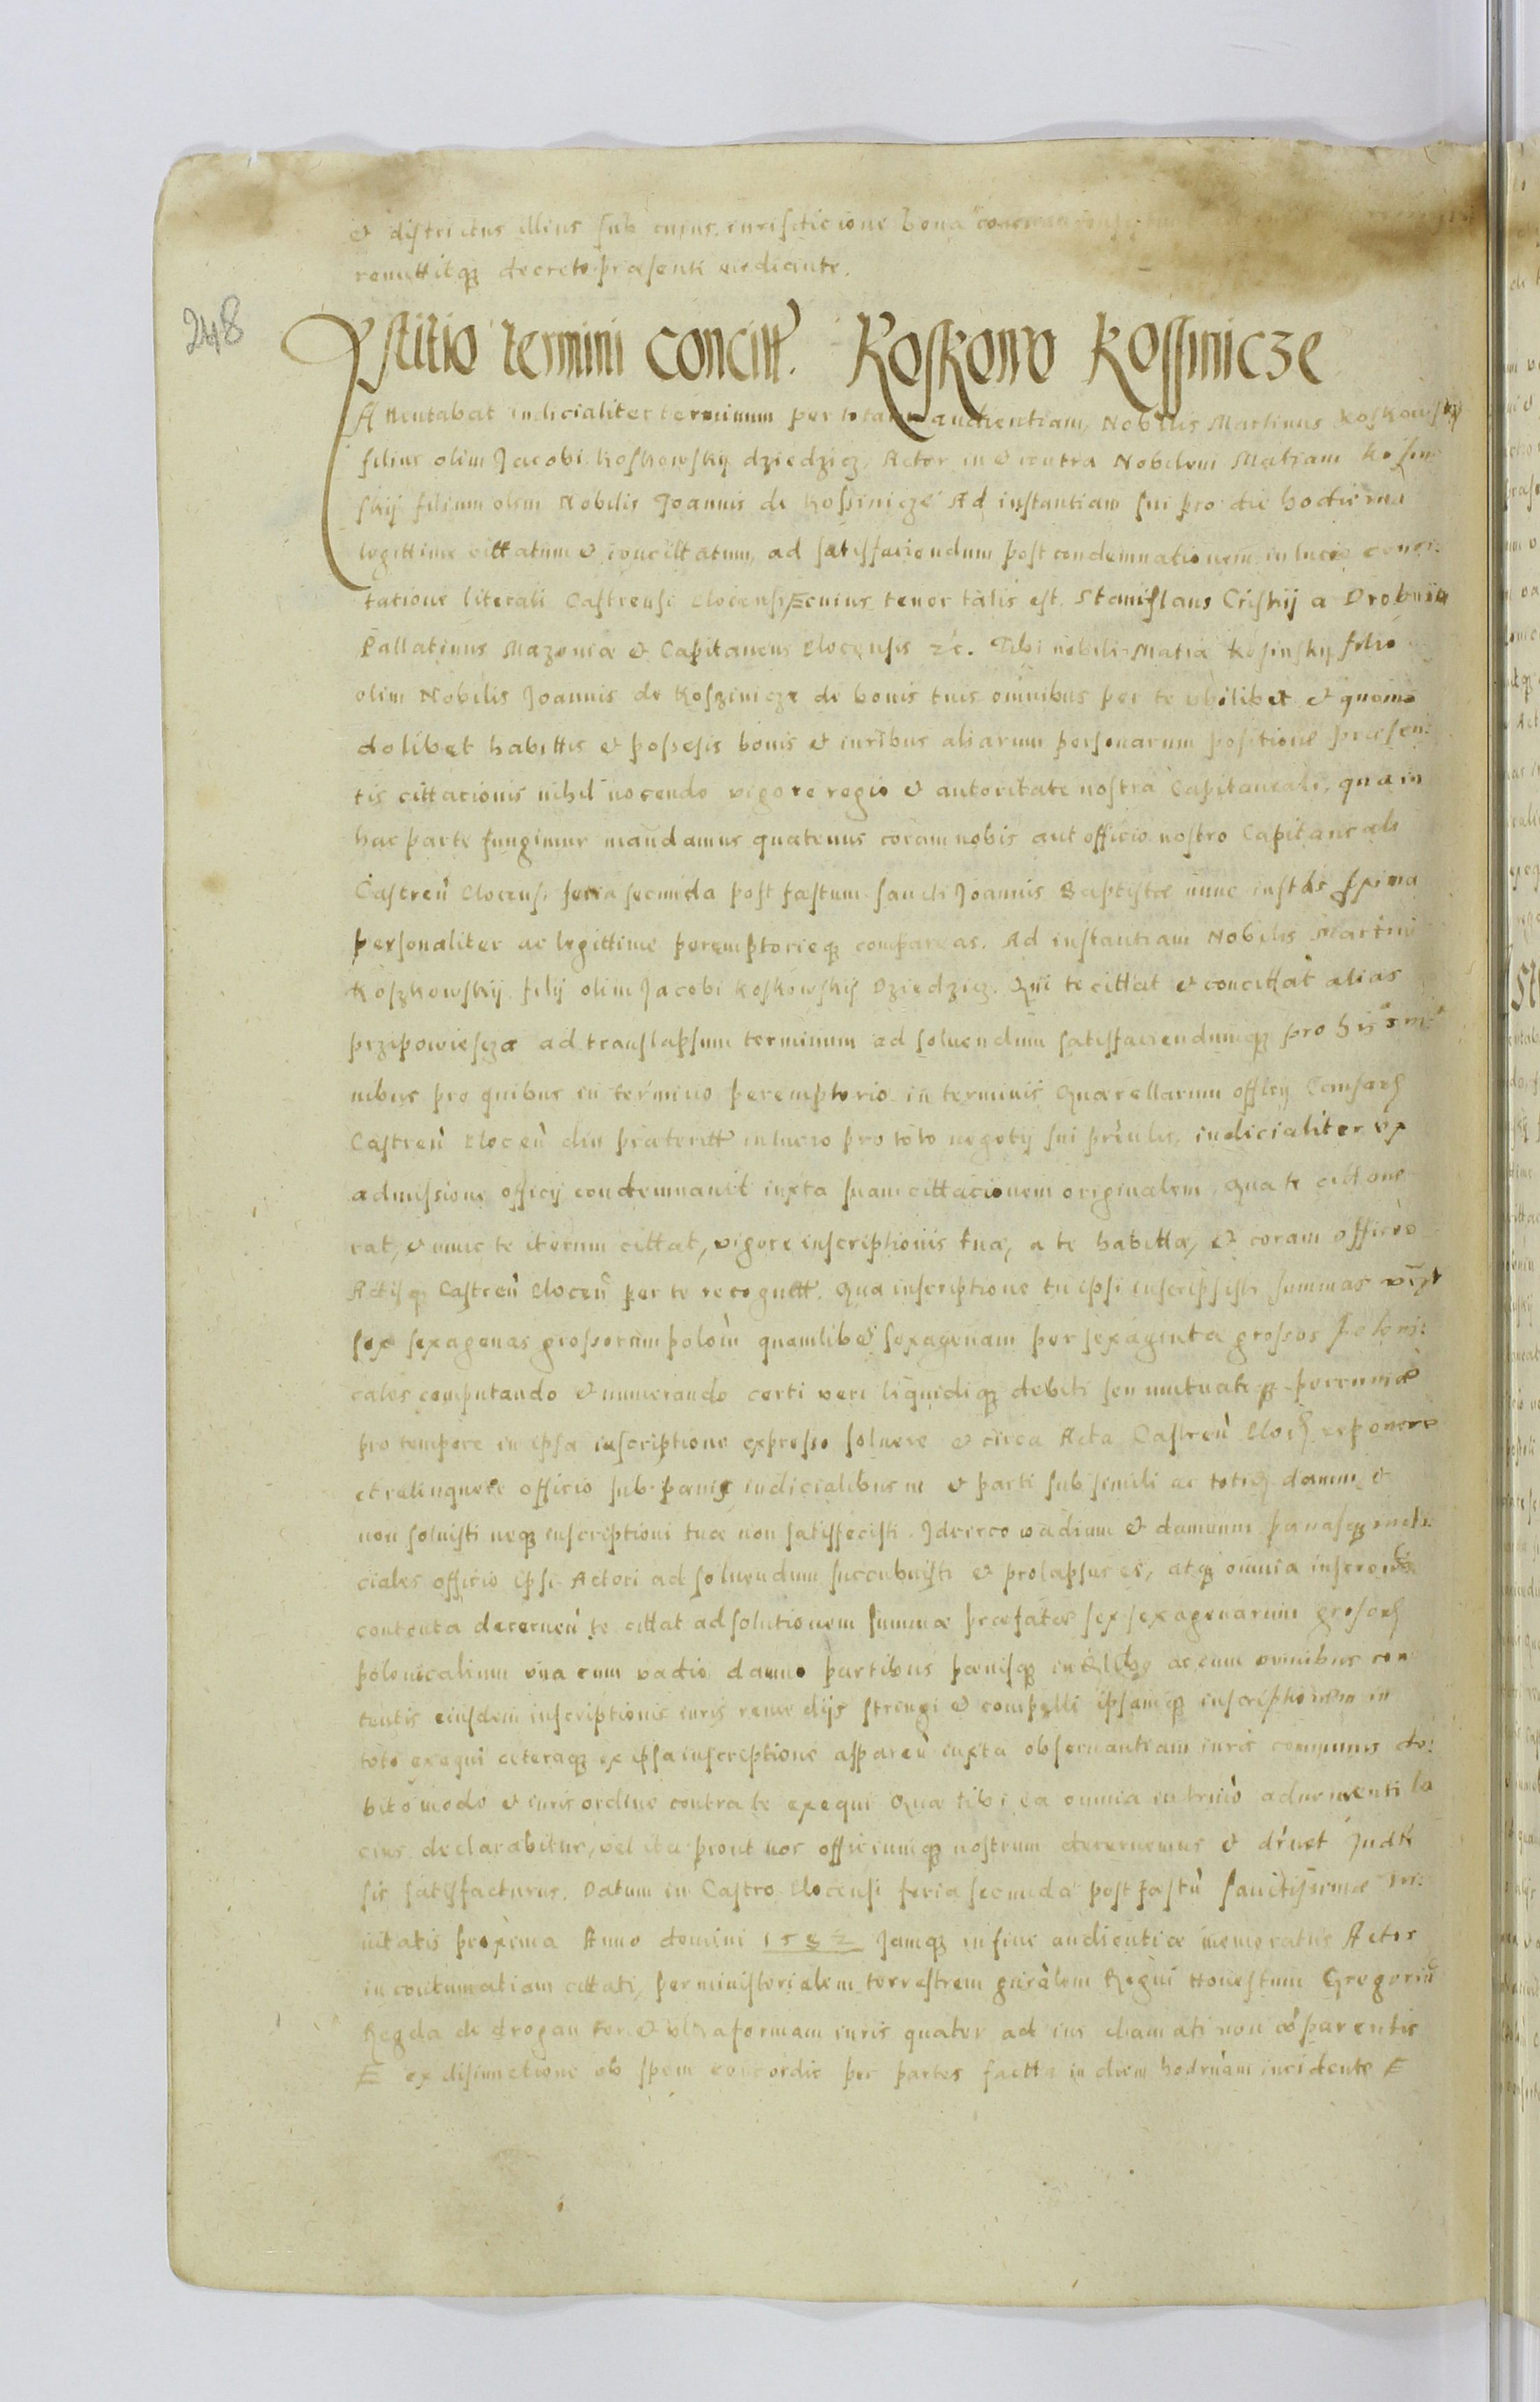 & districtus illius sub cuius iurisditione bona
remittitq3 decreto præsenti mediante.
248
Astitio termini concitt. Koskowo Kossinicze
Attentabat iudicialiter terminum per totam audientiam, Nobilis Martinus Koskowsky
filius olim Jacobi Koskowsky dziedzicz, Actor in & contra Nobilem Matiam Kosin
skij filium olim Nobilis Joannis de Kossinicze Ad instantiam sui pro die hodierna
legittime cittatum & concittatum, ad satisfaciendum post condemnationem in lucro conci:
tatione literali Castrensi Plocensi E cuius tenor talis est. Stanislaus Criskij a Drobnin
Pallatinus Mazoniæ & Capitaneus Plocensis &c. Tibi nobili Matiæ Kosinskij filio
olim Nobilis Joannis de Kosziniczæ de bonis tuis omnibus per te ubilibet & quomo
dolibet habittis & possesis bonis & iuribus aliarum personarum positione præsen:
tis cittacionis nihil nocendo vigore regio & autoritate nostra Capitaneali, qua in
hac parte fungimur mandamus quatenus coram nobis aut officio nostro Capitaneali
Castreñ Plocensi feria secunda post fæstum Sancti Joannis Baptistæ nunc instãs pxima
personaliter ac legittime peremptorieq3 compareas. Ad instantiam Nobilis Martini
Koszkowskij filij olim Jacobi Koskowskij Dziedzicz. Qui te cittat & concittat alias
przipowiescza ad translapsum terminum ad soluendum satisfaciendumq3 pro his o̅m:
nibus pro quibus in termino peremptorio in terminis Quærellarum officij
Castreñ Ploceñ diu præteritt in lucro pro toto negotij sui iudicialiter ex
admissione officij condemnavit iuxta suam cittacionem originalem, Qua te cittave
rat, & nunc te iterum cittat, vigore inscriptionis tuæ, a te habittæ, & coram officio
Actisq3 Castreñ Ploceñ per te recognitt. Qua inscriptione tu ipsi inscripsisti summas
sex sexagenas grossorum poloñ quamlibet sexagenam per sexaginta grossos Poloni:
cales computando & numerando certi veri liquidiq3 debiti seu mutuatiq3 peccuniæ
pro tempore in ipsa inscriptione expresso soluere & circa Acta Castreñ reponere
et relinquere officio sub pænis iudicialibus & parti sub simili ac damni &
non soluisti neq3 inscriptioni tuæ non satisfecisti. Idcirco vadium & damnum pænasq3 iudi:
ciales officio ipsi Actori ad soluendum succubuisti & prolapsus es, atq3 omnia
contenta decerneñ te cittat ad solutionem summæ præfatæ sex sexagenarum
polonicalium una cum vadio damno partibus pænisq3 ac cum omnibus con
tentis eiusdem inscriptionis iuris remedijs stringi & compelli ipsamq3 inscriptionem in
toto exequi ceteraq3 ex ipsa inscriptione appareñ iuxta obseruantiam iuris communis de:
bito modo & iuris ordine contra te exequi Quæ tibi ea omnia in trno̅ adueni̅enti la
cius declarabitur, vel ita prout nos officiumq3 nostrum decernemus &
sis satisfacturus. Datum in Castro Plocensi feria secunda post fæstu̅ Sanctissimæ tri:
nitatis proxima Anno domini 1582 Jamq3 in fine audientiæ memoratus Actor
in contumatiam cittati, per ministerialem terrestrem gñralem Regni Honestum Gregoriu̅
Regda de ter & ultra formam iuris quater ad ius clamati non co̅parentis
E ex disiunctione ob spem concordiæ per partes factta in diem hodrnam incidente E